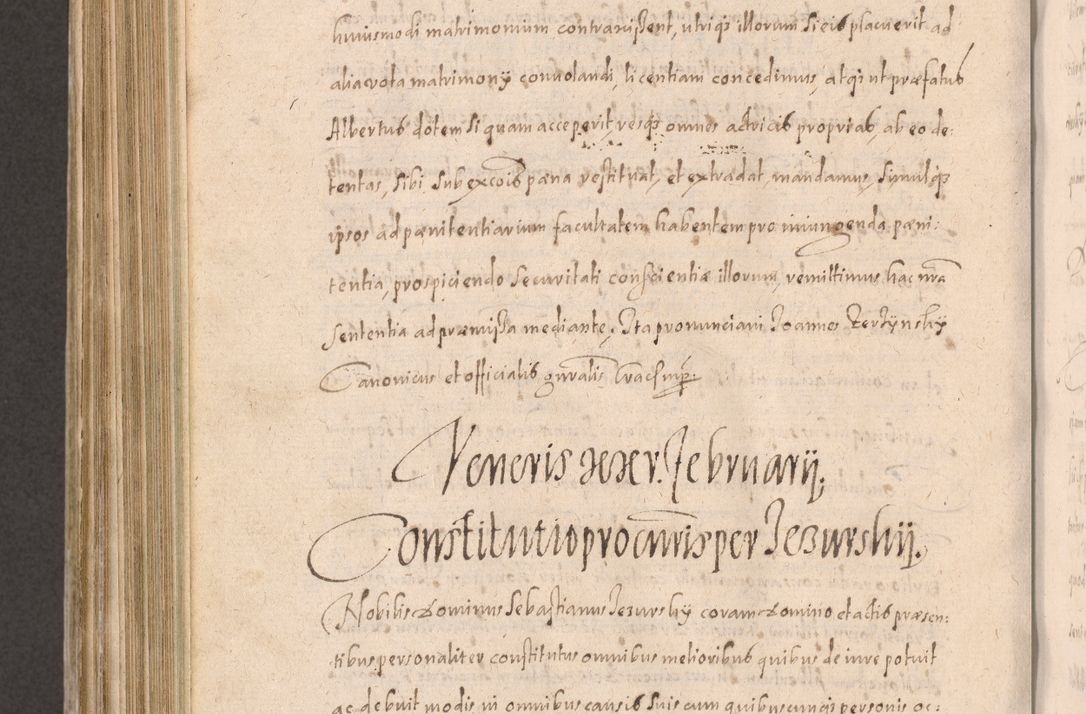 huiusmodi matrimonium contraxissent, utriq́ꝫ illorum si eis placuerit ad
alia vota matrimonÿ convolandi, licentiam concedimus, atqꝫ ut præfatus
Albertus dotem si quam acceperit, resqꝫ omnes actricis proprias, ab eo de:
tentas, sibi sub excōis pæna restituat, et extradat, mandamus, simulqꝫ
ipsos ad pænitentiarium facultatem habentem pro iniungenda pæni:
tentia, prospiciendo securitati conscientiæ illorum, remittimus hac nrã
sententia ad præmissa mediante. Ita pronunciavi Joannes
Canonicus et officialis gnralis Crac̃
Veneris Februarÿ,
Constitutio procuris per Jezurskÿ.
Nobilis dominus Sebastianus Jezurskÿ coram domino et actis præsen:
tibus personaliter constitutus omnibus melioribus quibus de iure potuit
ac debuit modis in omnibus causis suis cum quibuscunqꝫ personis oc: